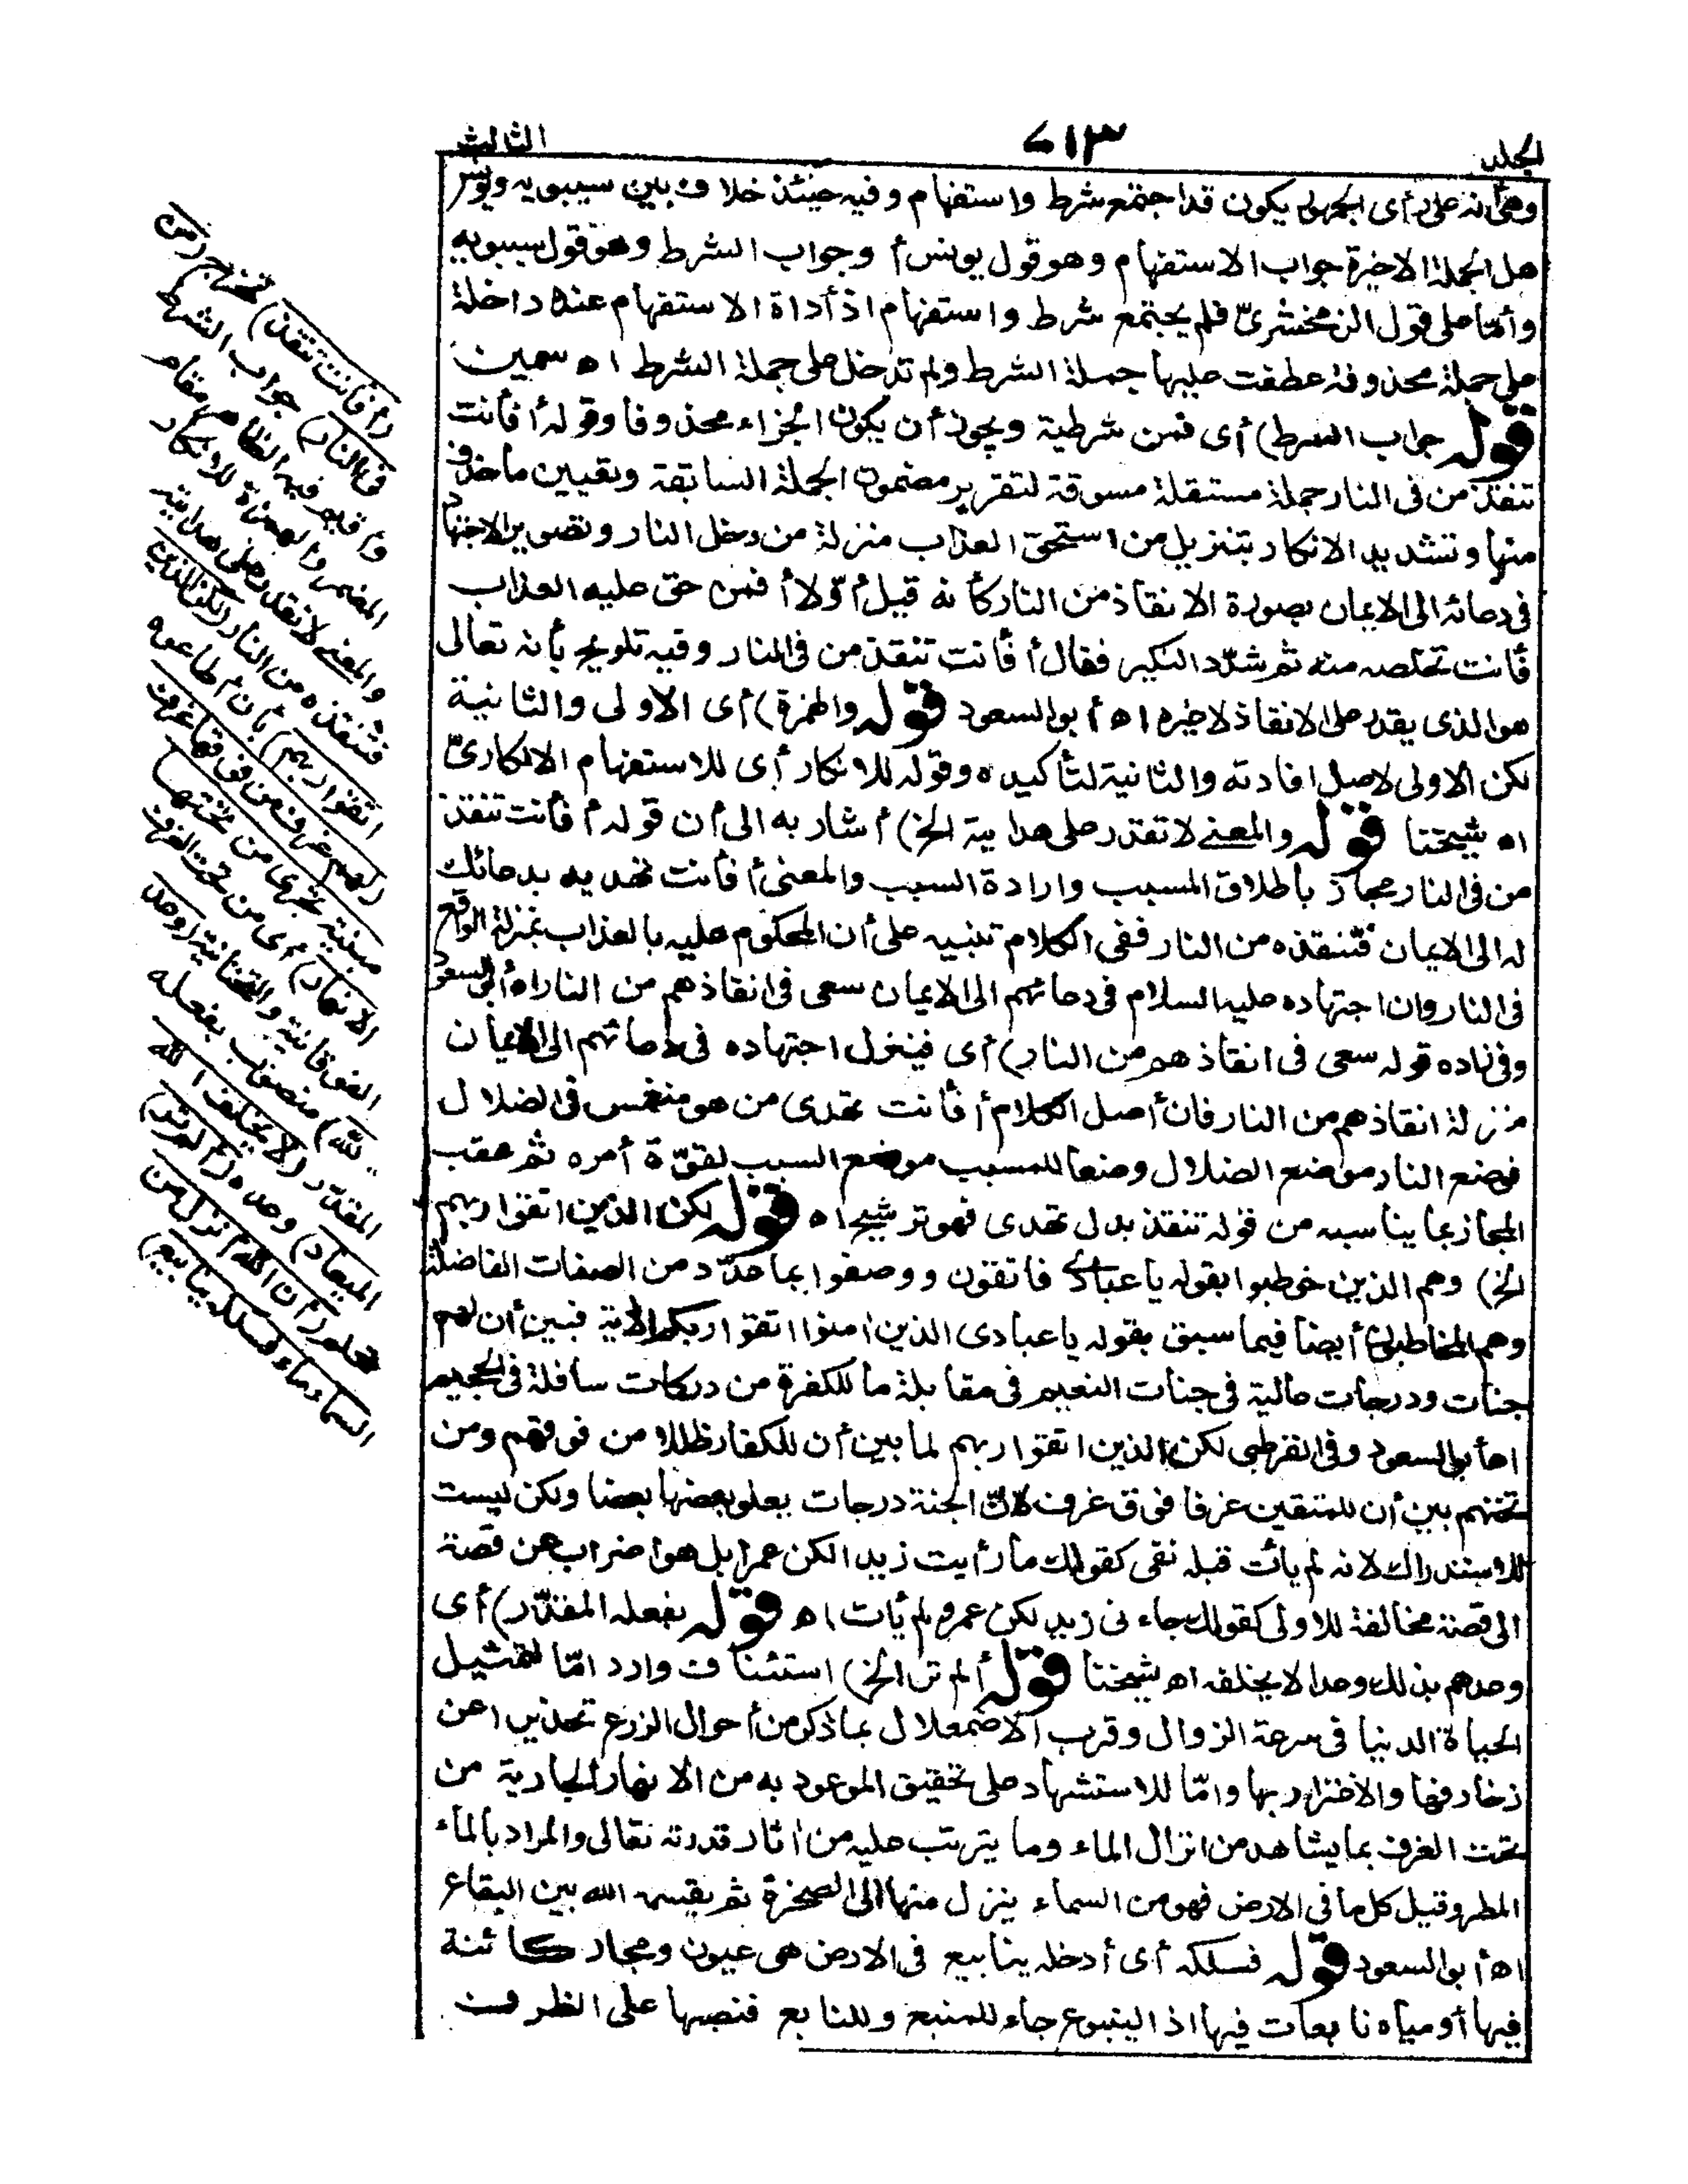 الجلد ٦١٣ الثالث
وهى أنه على رأى الجمهور يكون قد اجتمع شرط واستفهام وفيه حينئذ خلاف بين سيبويه ويونس
هل الجملة الاخيرة جواب الاستفهام وهو قول يونس أ وجواب الشرط وهو قول سيبويه
وأمّا على قول الزمخشرىّ فلم يجتمع شرط واستفهام اذ أداة الاستفهام عنده داخلة
على جملة محذوفة عطفت عليها جملة الشرط ولم تدخل على جملة الشرط اه سمين
قوله جواب الشرط) أى فمن شرطية ويجوز أن يكون الجزاء محذوفا وقوله أفأنت
تنقذ من فى النار جملة مستقلة مسوقة لتقرير مضمون الجملة السابقة وتعيين ما حذف
منها وتشديد الانكار بتنزيل من استحق العذاب منزلة من دخل النار وتصوير الاجتهاد
فى دعائه الى الايمان بصورة الانقاذ من النار كأنه قيل أوّلا أفمن حق عليه العذاب
فأنت تخلصه منه ثم شدّد النكير فقال أفأنت تنقذ من فى النار وفيه تلويح بأنه تعالى
هو الذى يقدر على الانقاذ لا غيره اه أبو السعود قوله والهمزة) أى الاولى والثانية
لكن الاولى لاصل افادته والثانية لتأكيده وقوله للانكار أى للاستفهام الانكارىّ
اه شيخنا قوله والمعنى لا تقدر على هدايته الخ) أشار به الى أن قوله أفأنت تنقذ
من فى النار مجاز باطلاق المسبب وارادة السبب والمعنى أفأنت تهديه بدعائك
له الى الايمان فتنقذه من النار ففى الكلام تنبيه على أن المحكوم عليه بالعذاب بمنزلة الواقع
فى النار وان اجتهاده عليه السلام فى دعائهم الى الايمان سعى فى انقاذهم من النار اه أبو السعود
وفى زاده قوله سعى فى انقاذهم من النار) أى فينزل اجتهاده فى دعائهم الى الايمان
منزلة انقاذهم من النار فان أصل الكلام أفأنت تهدى من هو منغمس فى الضلال
فوضع النار موضع الضلال وضعا للمسبب موضع السبب لقوّة أمره ثم عقب
المجاز بما يناسبه من قوله تنقذ بدل تهدى فهو ترشيح اه قوله لكن الذين اتقوا ربهم
الخ) وهم الذين خوطبوا بقوله يا عباد فاتقون ووصفوا بما عدّد من الصفات الفاضلة
وهم المخاطبون أيضا فيما سبق بقوله يا عبادى الذين امنوا اتقوا ربكم الآية فبين أن لهم
جنات ودرجات عالية فى جنات النعيم فى مقابلة ما للكفرة من دركات سافلة فى الجحيم
اه أبو السعود وفى القرطبى لكن الذين اتقوا ربهم لما بين أن للكفار ظللا من فوقهم ومن
تحتهم بين أن للمتقين غرفا فوق غرف لانّ الجنة درجات يعلو بعضها بعضا ولكن ليست
للاستدراك لانه لم يأت قبله نفى كقولك ما رأيت زيدا لكن عمرا بل هو اضراب عن قصة
الى قصة مخالفة للاولى كقولك جاءنى زيد لكن عمرو لم يأت اه قوله بفعله المقدّر) أى
وعدهم بذلك وعدا لا يخلفه اه شيخنا قوله ألم تر الخ) استئناف وارد امّا لتمثيل
الحياة الدنيا فى سرعة الزوال وقرب الاضمحلال بما ذكر من أحوال الزرع تحذيرا عن
زخارفها والاغترار بها وامّا للاستشهاد على تحقيق الموعود به من الانهار الجارية من
تحت الغرف بما يشاهد من انزال الماء وما يترتب عليه من اثار قدرته تعالى والمراد بالماء
المطر وقيل كل ما فى الارض فهو من السماء ينزل منها الى الصخرة ثم يقسمه الله بين البقاع
اه أبو السعود قوله فسلكه أى أدخله ينابيع فى الارض هى عيون ومجار كائنة
فيها أو مياه نابعات فيها اذ الينبوع جاء للمنبع وللنابع فنصبها على الظرف
(أفأنت تنقذ) تخرج (من
فى النار) جواب الشرط
وأقيم فيه الظاهر مقام
المضمر والهمزة للانكار
والمعنى لا تقدر على هدايته
فتنقذه من النار (لكن الذين
اتقوا ربهم) بأن أطاعوه
(لهم غرف من فوقها غرف
مبنية تجرى من تحتها
الانهار) أى من تحت الغرف
الفوقانية والتحتانية (وعد
الله) منصوب بفعله
المقدّر (لا يخلف الله
الميعاد) وعده (ألم تر)
تعلم (أن الله أنزل من
السماء ماء فسلكه ينابيع)